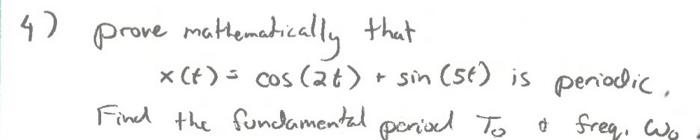 4) prove mathematically that
x(t) = cos(2t) + sin(5t) is periodic.
Find the fundamental period To & freq. ωo